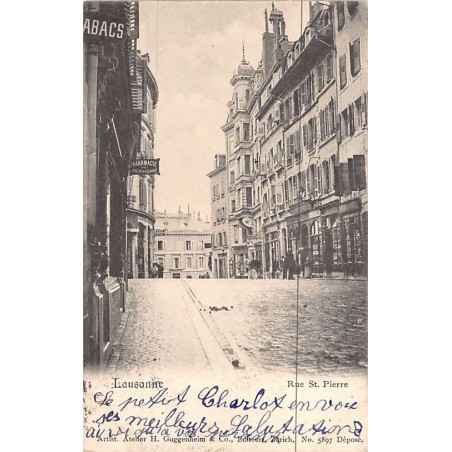 ABACS
PHARMACIE
Lausanne
Rue St. Pierre
Le petit Charlot envoie
ses meilleurs Salutations
Artist. Atelier H. Guggenheim & Co., Editeurs, Zürich, No. 5897 Déposé.